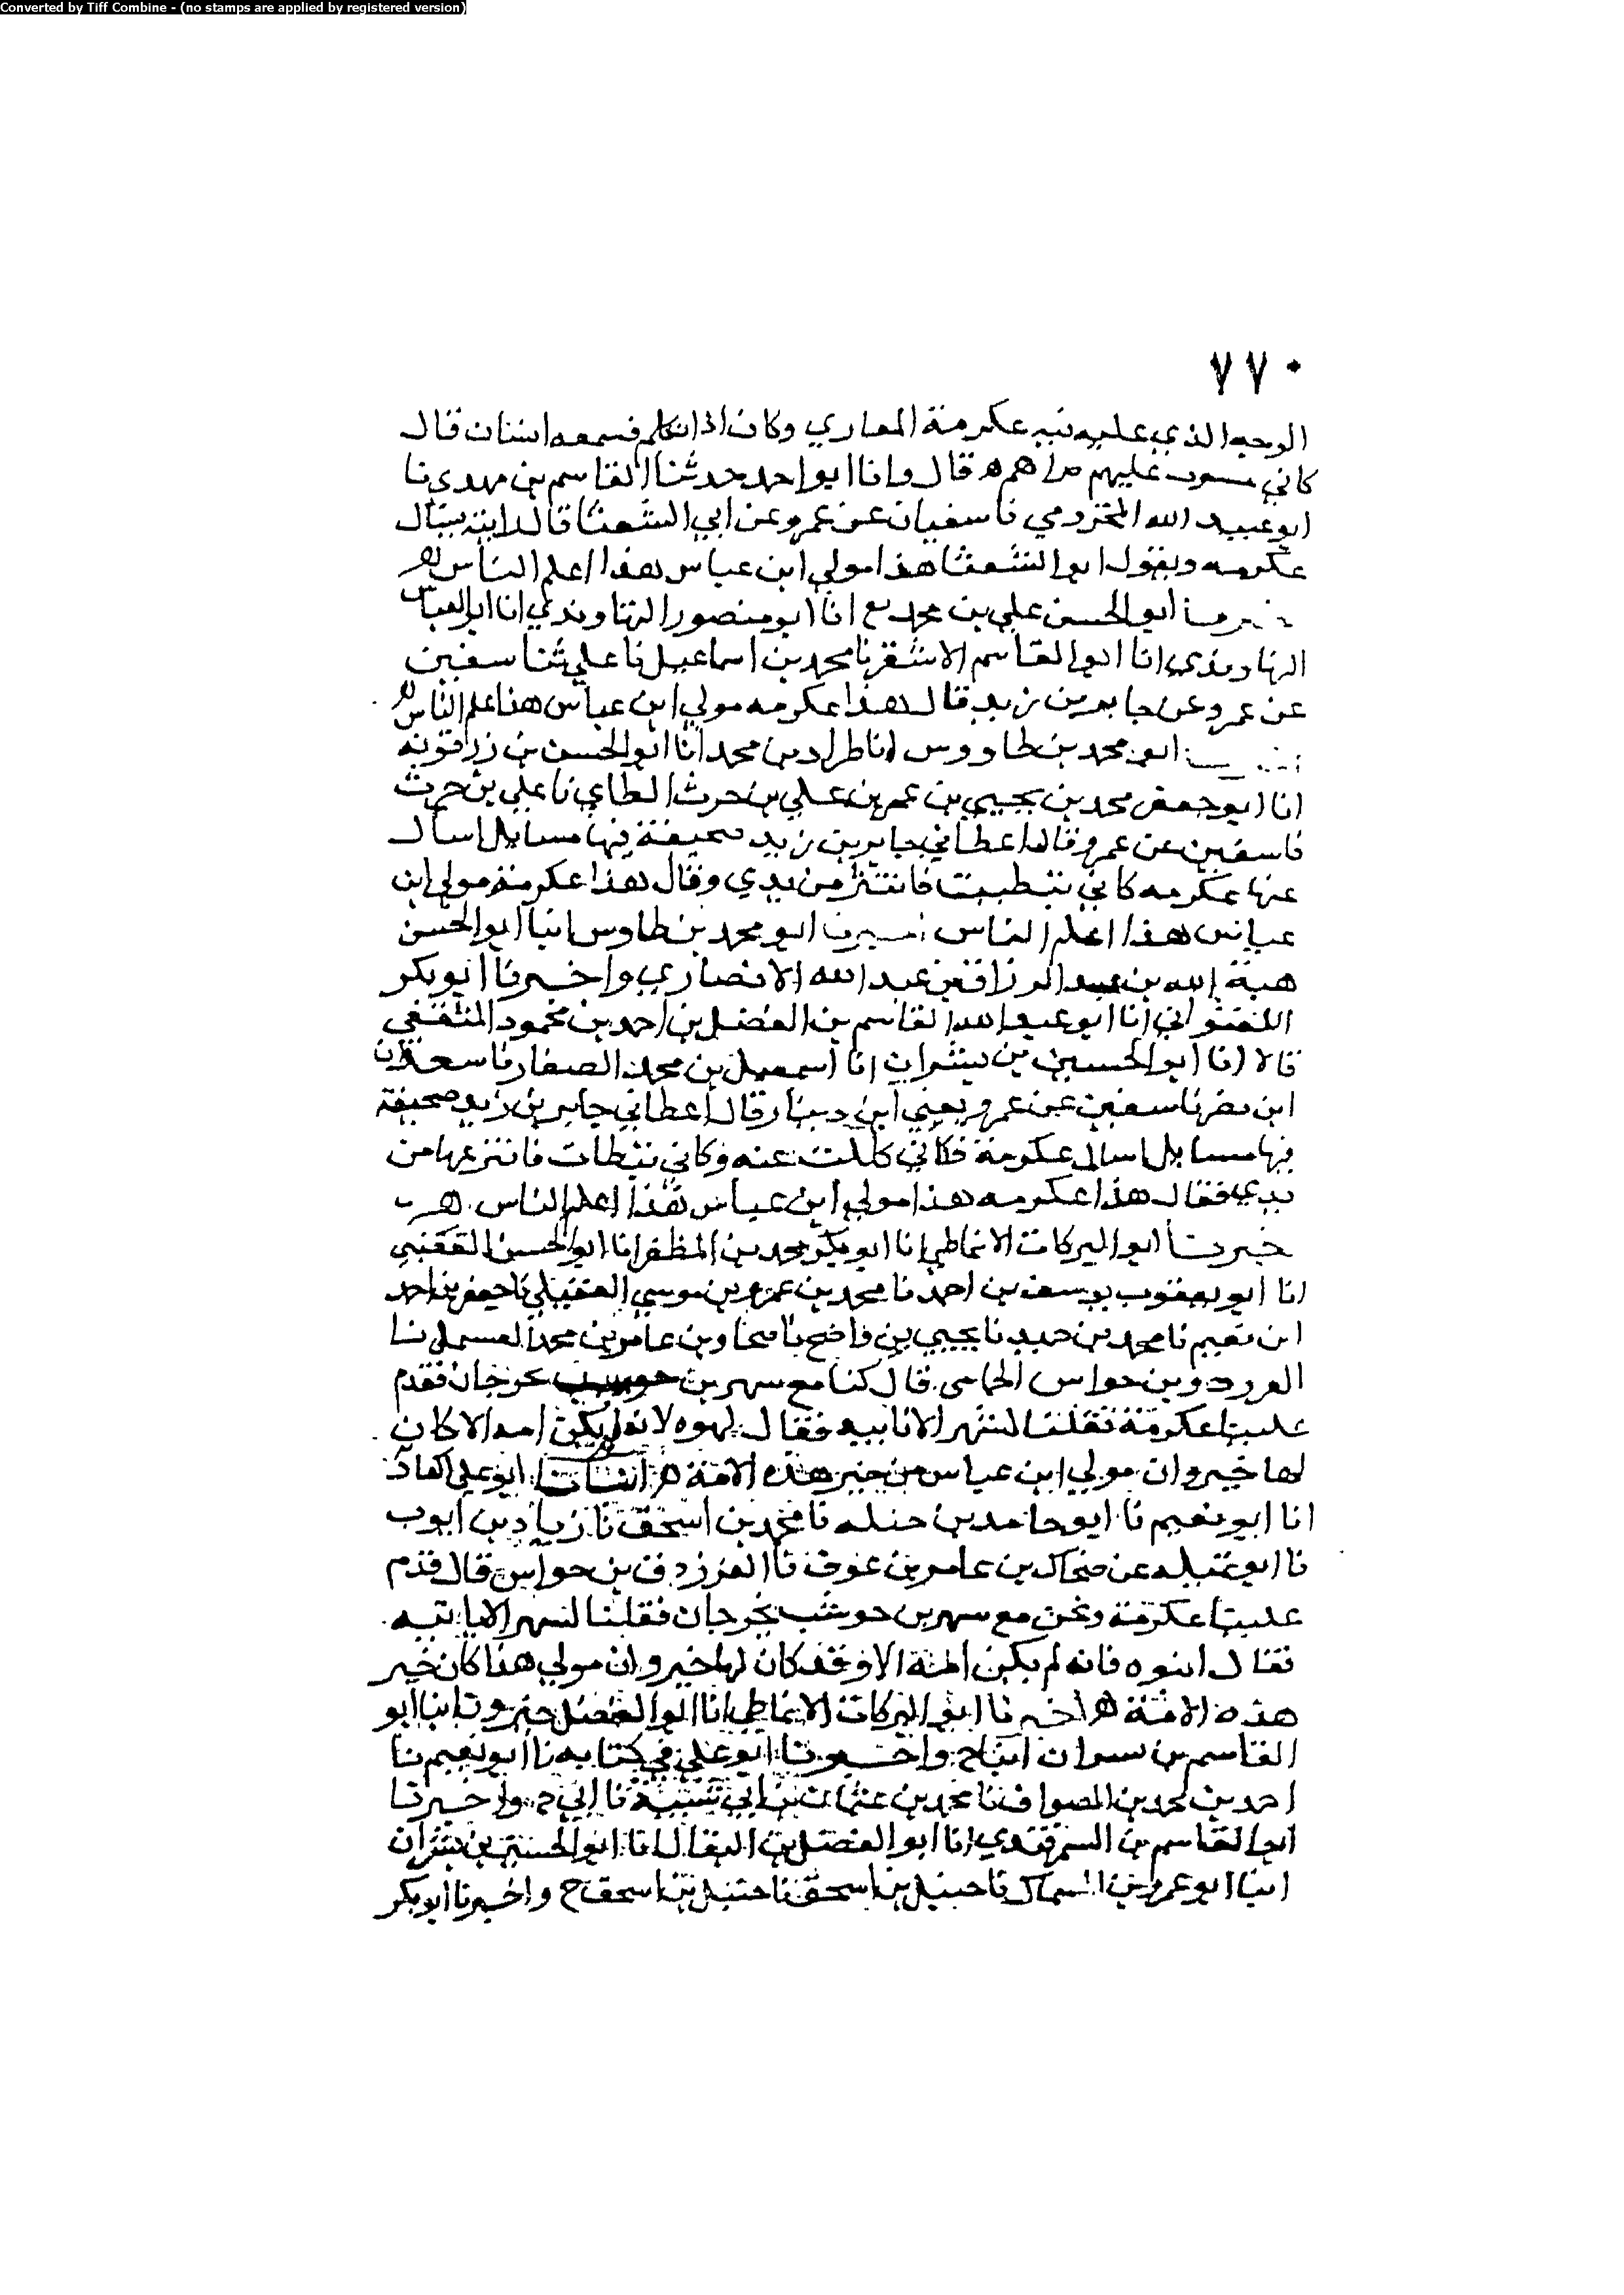 Converted by Tiff Combine - (no stamps are applied by registered version)
٧٧٠
الوجه الذي عليه نبه عكرمة المعاري وكان اذا تكلم فسمعه انسان قال
كاني عليهم هم قال وانا ابو احمد حدثنا القاسم بن مهدي نا
ابو عبيد الله المخزومي نا سفيان عن عمرو عن ابي الشعثا قال
عكرمه ويقول ابو الشعثا هذا مولي ابن عباس هذا اعلم الناس
ابو الحسن علي بن محمد انا ابو منصور النهاوندي انا ابو العباس
النهاوندي انا ابو القاسم الاشقر نا محمد بن اسماعيل نا علي ثنا سفين
عن عمرو عن جابر بن زيد قال هذا عكرمه مولي ابن عباس هذا اعلم الناس
ابو محمد بن طاووس انا طراد بن محمد انا ابو الحسن بن زرقونه
انا ابو جعفر محمد بن يحيي بن عمر بن علي بن حرث الطاي نا علي بن حرث
نا سفين عن عمرو قال اعطاني جابر بن زيد صحيفة فيها مسايل اسال
عنها عكرمه كاني تبطيت فانتز من يدي وقال هذا عكرمة مولي ابن
عباس هذا اعلم الناس ابو محمد بن طاوس انبا ابو الحسن
هبة الله بن عبد الرزاق بن عبد الله الانصاري واخبرنا ابو بكر
اللفتواني انا ابو عبد الله القاسم بن الفضل بن احمد بن محمود الثقفي
قالا انا ابو الحسين بن بشران انا اسمعيل بن محمد الصفار نا سعدان
ابن نصر نا سفين عن عمرو يعني ابن دينار قال اعطاني جابر بن زيد صحيفة
فيها مسايل اسال عكرمة فكاني كللت عنه وكاني تبطات فانتزعها من
يدي فقال هذا عكرمه هذا مولي ابن عباس هذا اعلم الناس
خبرنا ابو البركات الانماطي انا ابو بكر محمد بن المظفر انا ابو الحسن العتيقي
انا ابو يعقوب يوسف بن احمد نا محمد بن عمرو بن موسي العقيلي نا جعفر بن احمد
ابن نعيم نا محمد بن حميد نا يحيي بن واضح نا بن عامر بن محمد نا
بن حواس الحماسي قال كنا مع سهر بن حوشب بحرجان فقدم
علينا عكرمة فقلنا لشهر الا ناتيه فقال لم يكن امه الا كان
لها خير وان مولي ابن عباس من خير هذه الامة انبانا ابو علي الحداد
انا ابو نعيم نا ابو حامد بن حنله نا محمد بن اسحق نا زياد بن ايوب
نا ابو تميله عن ضحاك بن عامر بن عوف نا الفرزدق بن حواس قال قدم
علينا عكرمة ونحن مع سهر بن حوشب بجرجان فقلنا لسهر الا ناتيه
فقال ايتوه فانه لم يكن امة الا وقد كان لها خير وان مولي هذا كان خير
هذه الامة اخبرنا ابو البركات الانماطي انا ابو الفضل بن خيرون انبا ابو
القاسم بن سران واخبرنا ابو علي في كتابه نا ابو نعيم نا
احمد بن محمد بن الصواف نا محمد بن عثمان بن ابي شيبة نا ابي ح واخبرنا
ابو القاسم بن السمرقندي انا ابو الفضل بن البقال انا ابو الحسين بن بشران
انبا ابو عمرو بن السماك نا حنبل بن اسحق نا حنبل بن اسحق ح واخبرنا ابو بكر